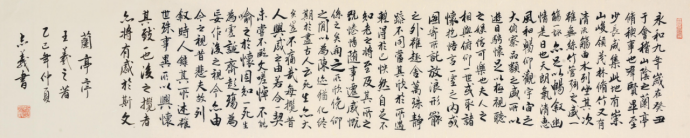 永和九年歲在癸丑
于會稽山陰之蘭亭
脩稧事也群賢畢至
少長咸集此地有崇
山峻領茂林脩竹又有
清流激湍
觴曲水列坐其次
雖無絲竹管弦之盛一觴一
詠亦足以暢叙幽
情是日也天朗氣清惠
風和暢仰觀宇宙之
大俯察品類之盛所以
遊目騁懷足以極視聽
之娛信可樂也夫人之
相與俯仰一世或取諸
懷抱悟言一室之內或
因寄所託放浪形骸
之外雖趣舍萬殊靜
躁不同當其欣於所遇
暫得於己怏然自足不
知老之將至及其所之
既惓情隨事遷感慨
係之矣向之所欣俛仰
之間以為陳迹
期於盡古人云死生亦大
矣豈不痛哉每攬昔
人興感之由若合一契
未嘗不臨文嗟悼不能
喻之於懷固知一死生
為虛誕齊彭殤為
妄作後之視今亦由
今之視昔悲夫故列
叙時人錄其所述雖
世殊事異所以興懷
其致一也後之攬者
亦將有感於斯文
蘭亭序
王羲之著
年仲夏
志義書